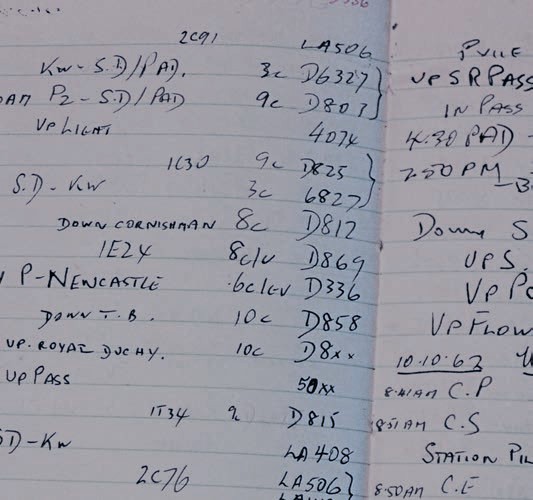 2C91 LA506
KW-S.D/PAD. 3c D6327
P2-S.D/PAD 9c D803
UP LIGHT 4074
1C30 9c D825
S.D-KW 3c 6827
DOWN CORNISHMAN 8c D812
1E24 8c/v D869
P-NEWCASTLE D336
DOWN T.B. 10c D858
UP. ROYAL DUCHY. 10c D8xx
UP PASS 50xx
1T34 D815
SD-KW LA408
2C76 LA506
UP S R PASS
IN PASS
4.30 PAD
7.50 PM
DOWN S
UP S.
UP
UP FLOW
10.10.62
8.41AM C.P
8.51AM C.S
STATION PIL
8.50AM C.E